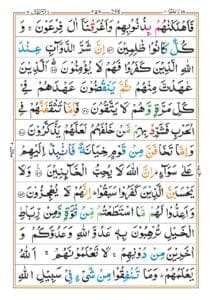 فَاَهْلَكْنٰهُمْ بِذُنُوْبِهِمْ وَاَغْرَقْنَاۤ اٰلَ فِرْعَوْنَ ۚ وَ
كُلٌّ كَانُوْا ظٰلِمِيْنَ ۝ اِنَّ شَرَّ الدَّوَآبِّ عِنْدَ
اللّٰهِ الَّذِيْنَ كَفَرُوْا فَهُمْ لَا يُؤْمِنُوْنَ ۝ اَلَّذِيْنَ
عٰهَدْتَّ مِنْهُمْ ثُمَّ يَنْقُضُوْنَ عَهْدَهُمْ
فِيْ كُلِّ مَرَّةٍ وَّهُمْ لَا يَتَّقُوْنَ ۝ فَاِمَّا تَثْقَفَنَّهُمْ فِي
الْحَرْبِ فَشَرِّدْ بِهِمْ مَّنْ خَلْفَهُمْ لَعَلَّهُمْ يَذَّكَّرُوْنَ ۝
وَاِمَّا تَخَافَنَّ مِنْ قَوْمٍ خِيَانَةً فَانْۢبِذْ اِلَيْهِمْ
عَلٰى سَوَآءٍ ؕ اِنَّ اللّٰهَ لَا يُحِبُّ الْخَآئِنِيْنَ ۝ وَلَا
يَحْسَبَنَّ الَّذِيْنَ كَفَرُوْا سَبَقُوْا ؕ اِنَّهُمْ لَا يُعْجِزُوْنَ ۝
وَاَعِدُّوْا لَهُمْ مَّا اسْتَطَعْتُمْ مِّنْ قُوَّةٍ وَّمِنْ رِّبَاطِ
الْخَيْلِ تُرْهِبُوْنَ بِهٖ عَدُوَّ اللّٰهِ وَعَدُوَّكُمْ وَ
اٰخَرِيْنَ مِنْ دُوْنِهِمْ ۚ لَا تَعْلَمُوْنَهُمْ ۚ اَللّٰهُ
يَعْلَمُهُمْ ؕ وَمَا تُنْفِقُوْا مِنْ شَيْءٍ فِيْ سَبِيْلِ اللّٰهِ